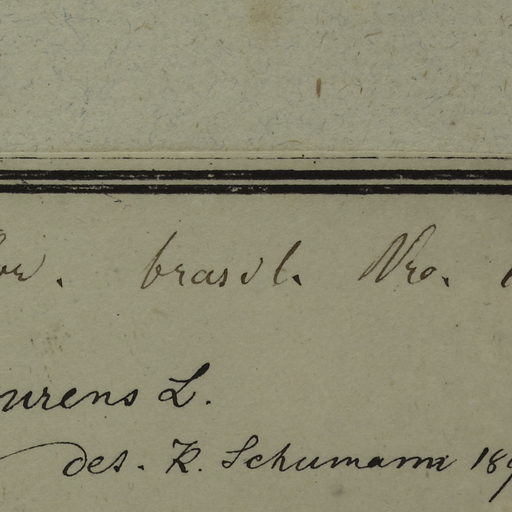 brasil. Nro.
urens L.
det. K. Schumann 189